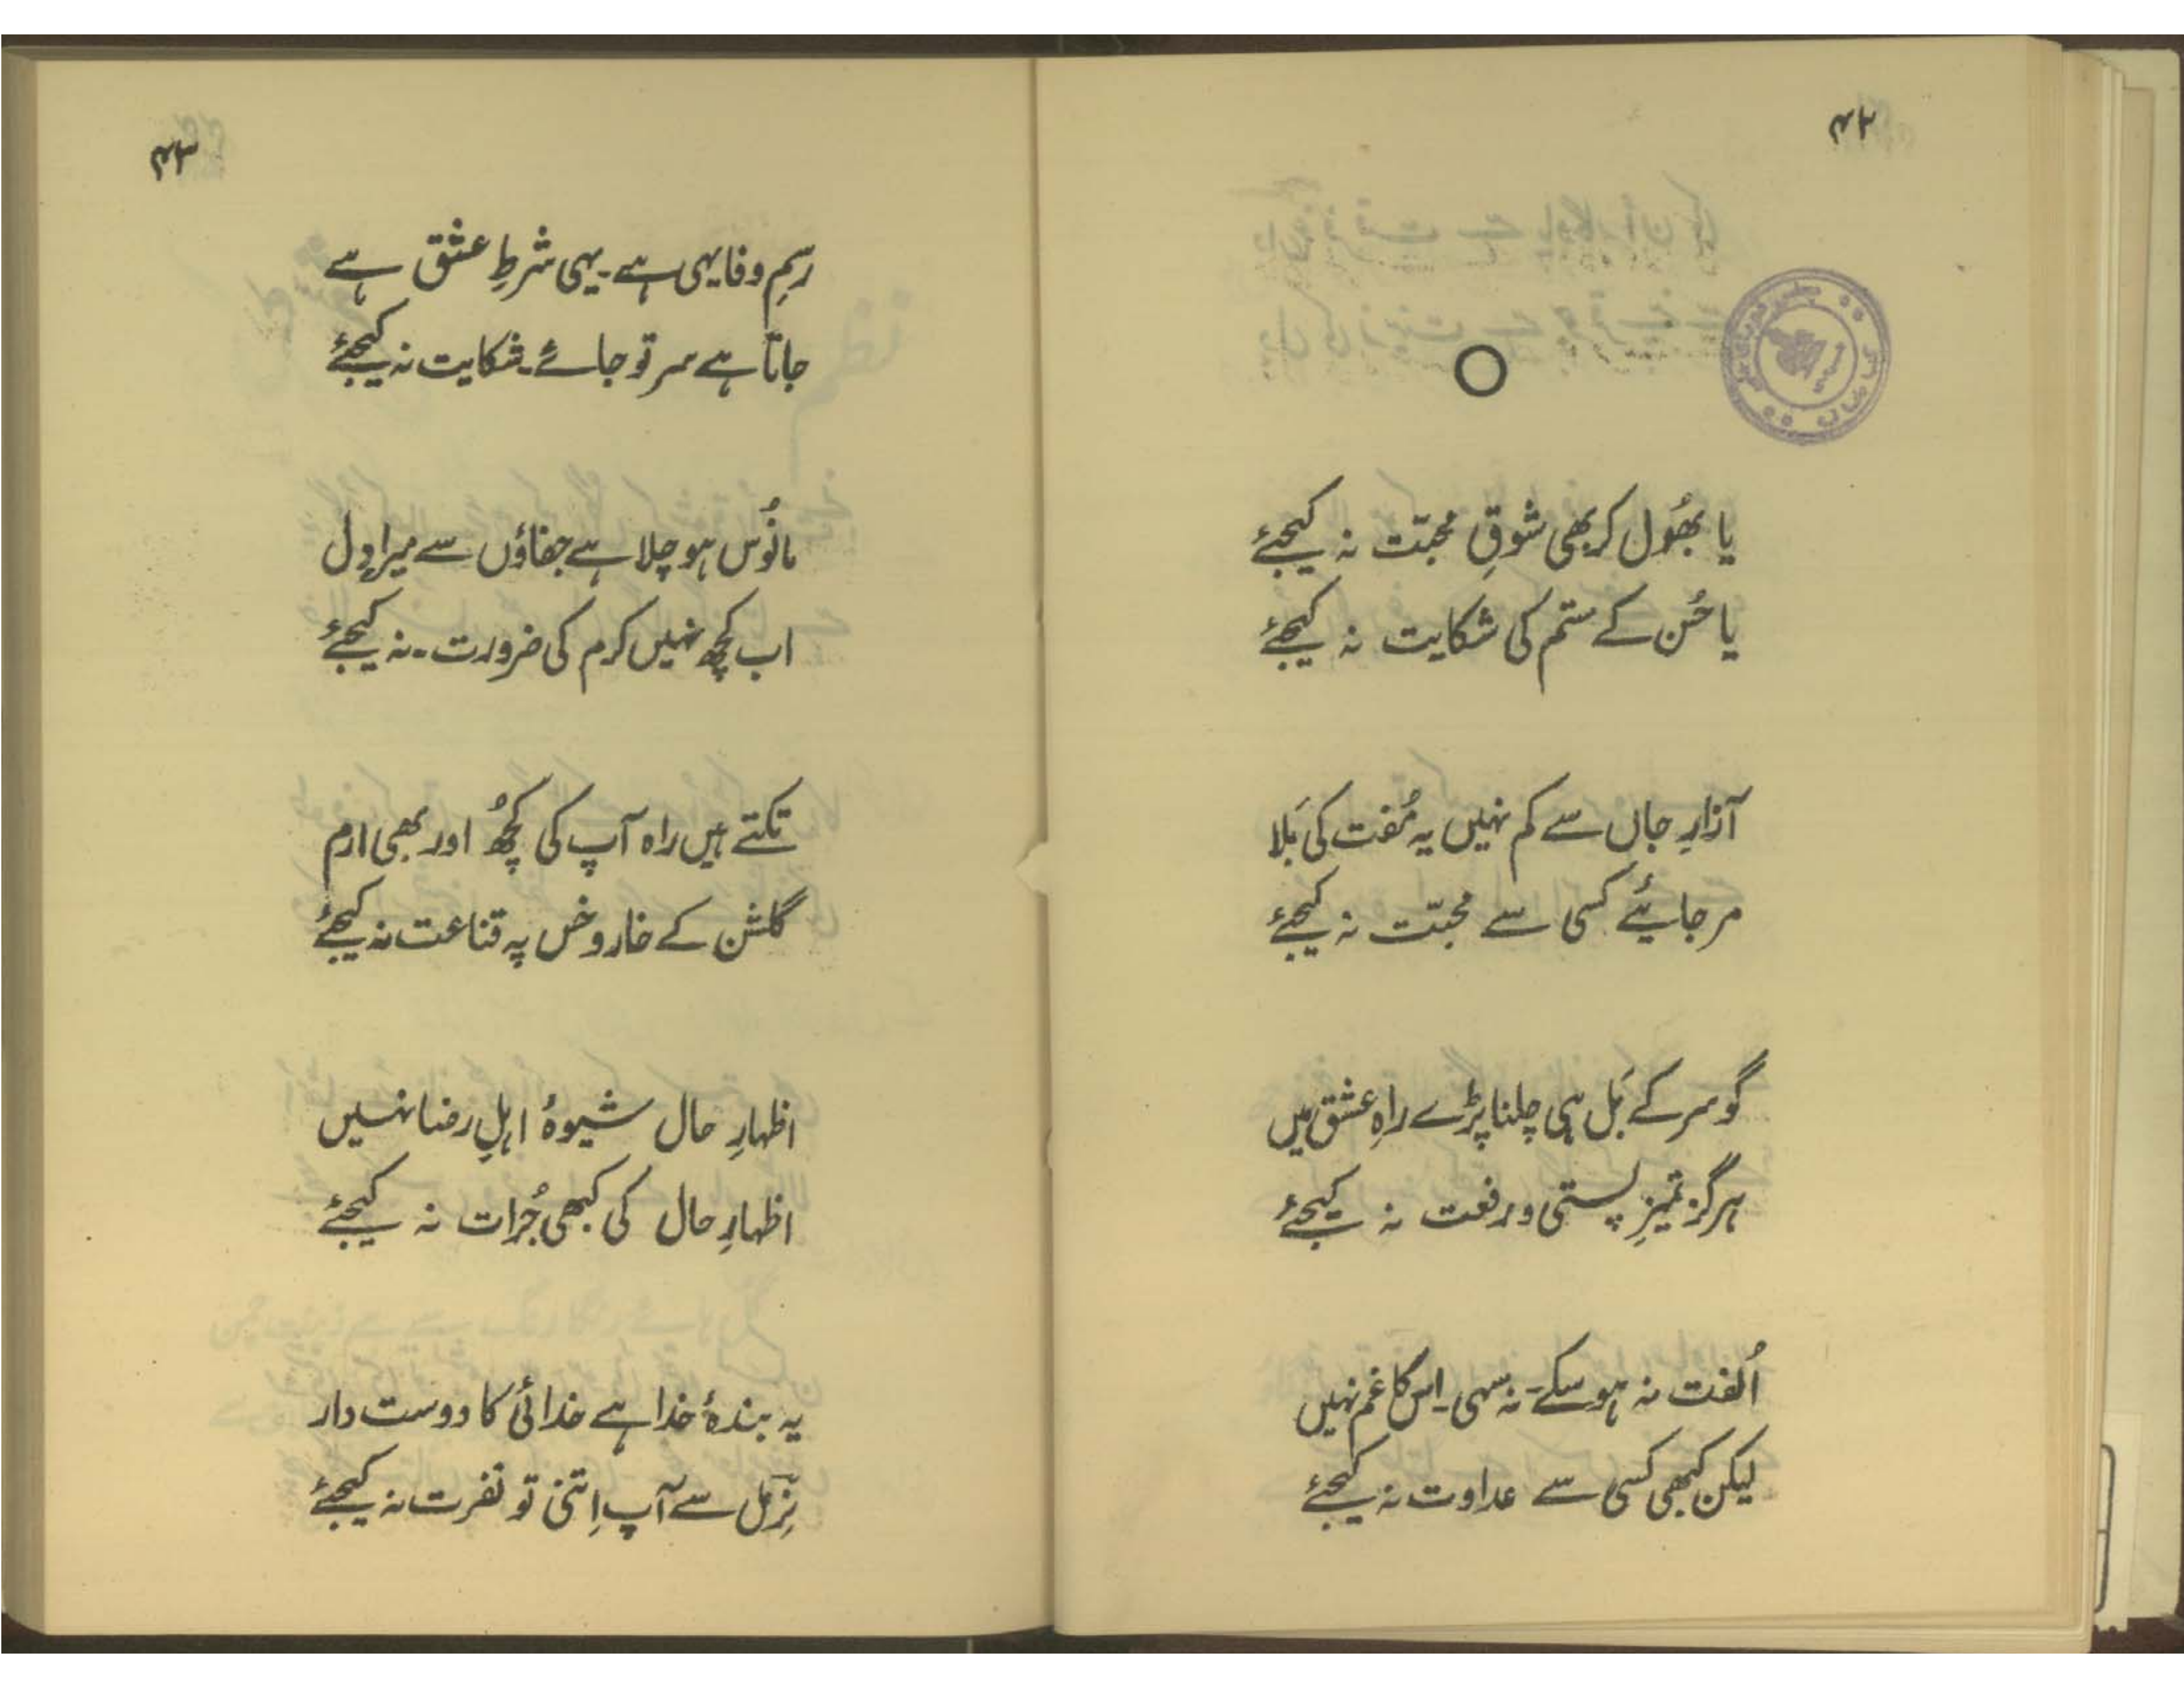 ۴۲
یا بھُول کر بھی شوقِ محبّت نہ کیجئے
یا حُسن کے ستم کی شکایت نہ کیجئے
آزارِ جاں سے کم نہیں یہ مُفت کی بَلا
مر جایئے کسی سے محبّت نہ کیجئے
گو سر کے بَل ہی چلنا پڑے راہِ عشق میں
ہرگز تمیزِ پستی و رفعت نہ کیجئے
اُلفت نہ ہو سکے۔ نہ سہی۔ اِس کا غم نہیں
لیکن کبھی کسی سے عداوت نہ کیجئے
۴۳
رسمِ وفا یہی ہے۔ یہی شرطِ عشق ہے
جاتا ہے سر تو جائے۔ شکایت نہ کیجئے
مانُوس ہو چلا ہے جفاؤں سے میرا دِل
اب کچھ نہیں کرم کی ضرورت۔ نہ کیجئے
تکتے ہیں راہ آپ کی کچھُ اور بھی ارم
گلشن کے خار و خس پہ قناعت نہ کیجئے
اظہارِ حال شیوۂ اہلِ رضا نہیں
اظہارِ حال کی کبھی جُرات نہ کیجئے
یہ بندۂ خدا ہے خدائی کا دوست دار
نِرمل سے آپ اِتنی تو نفرت نہ کیجئے